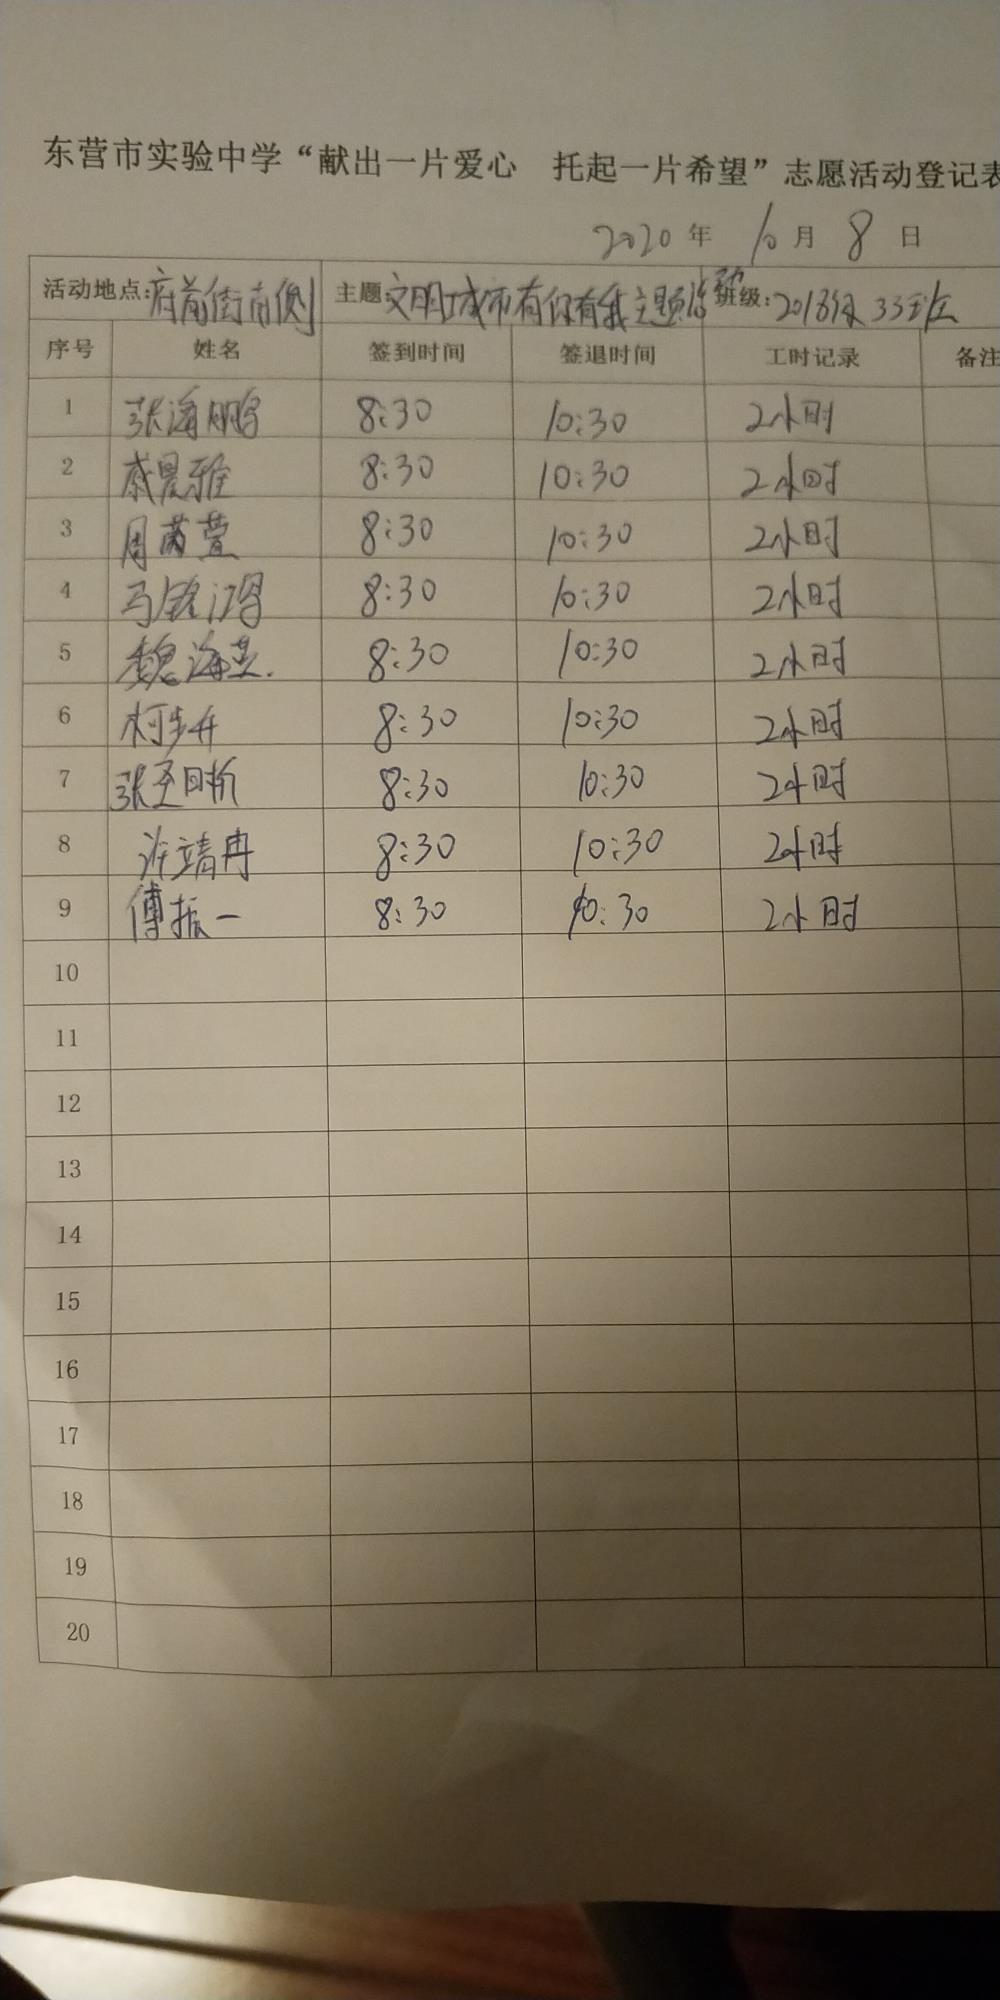 东营市实验中学“献出一片爱心 托起一片希望”志愿活动登记表
2020 年 10 月 8 日
活动地点:府前街南侧 主题:文明城市有你有我主题活动 班级:2018级33班
序号 姓名 签到时间 签退时间 工时记录 备注
1 张海鹏 8:30 10:30 2小时
2 戚晨雅 8:30 10:30 2小时
3 周茵萱 8:30 10:30 2小时
4 马铭鸿 8:30 10:30 2小时
5 魏海燕 8:30 10:30 2小时
6 柯步升 8:30 10:30 2小时
7 张昱昕 8:30 10:30 2小时
8 许靖冉 8:30 10:30 2小时
9 傅振一 8:30 10:30 2小时
10
11
12
13
14
15
16
17
18
19
20